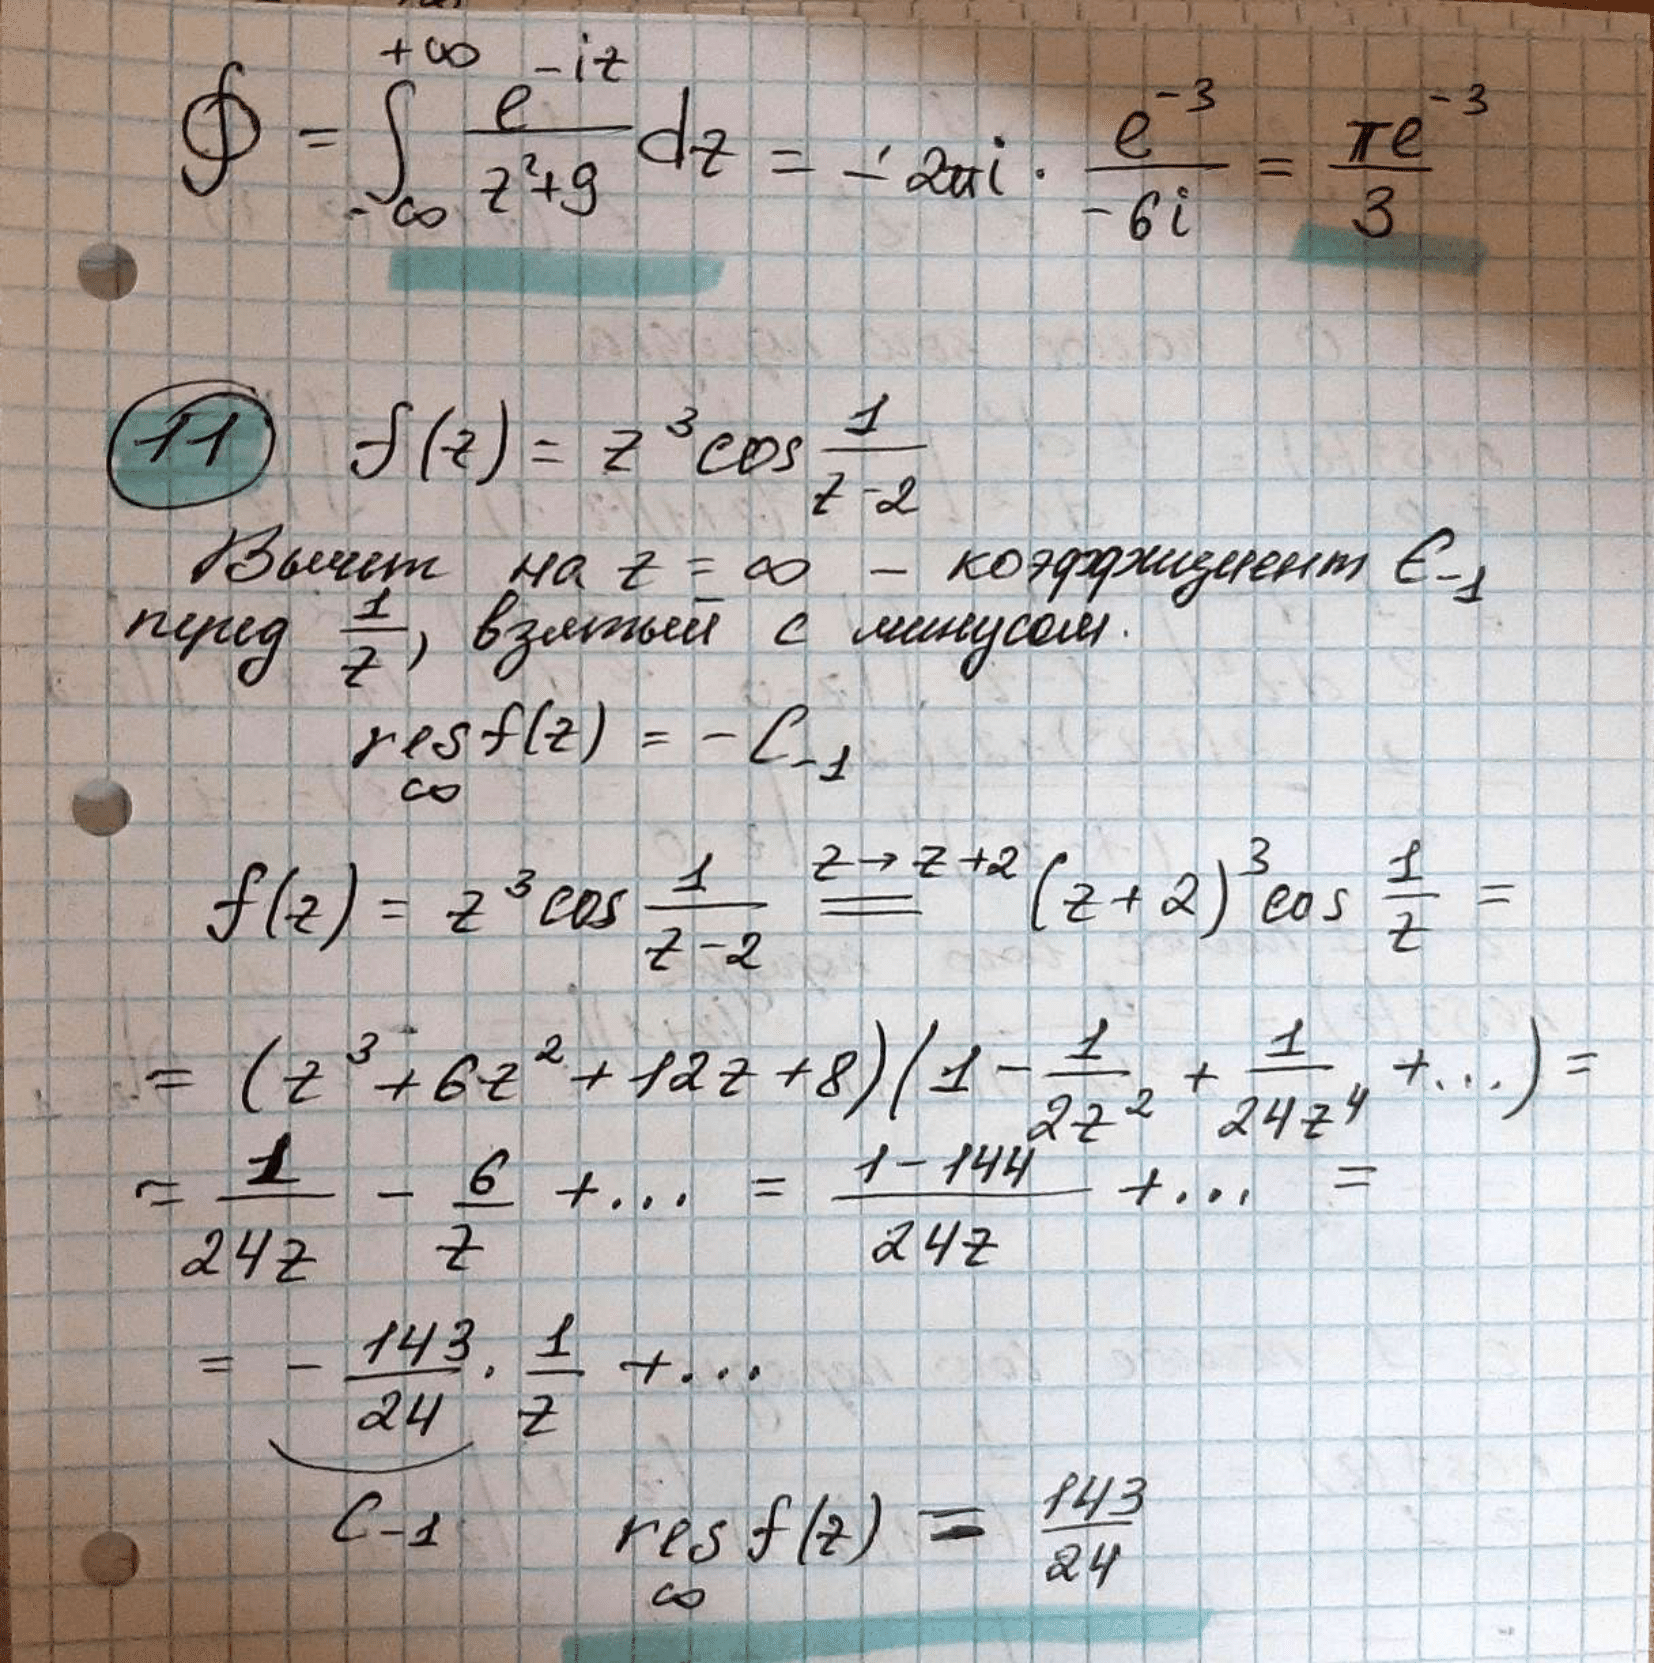 ∮ = ∫_{-∞}^{+∞} e^{-iz}/(z²+9) dz = -2πi · e^{-3}/(-6i) = πe^{-3}/3
11 f(z) = z³ cos 1/(z-2)
Вычет на z = ∞ – коэффициент C₋₁
перед 1/z, взятый с минусом.
res_∞ f(z) = -C₋₁
f(z) = z³ cos 1/(z-2) =^{z→z+2} (z+2)³ cos 1/z =
= (z³+6z²+12z+8)(1 - 1/(2z²) + 1/(24z⁴) +...) =
= 1/(24z) - 6/z +... = (1-144)/(24z) +... =
= - 143/24 · 1/z +...
C₋₁ res_∞ f(z) = 143/24